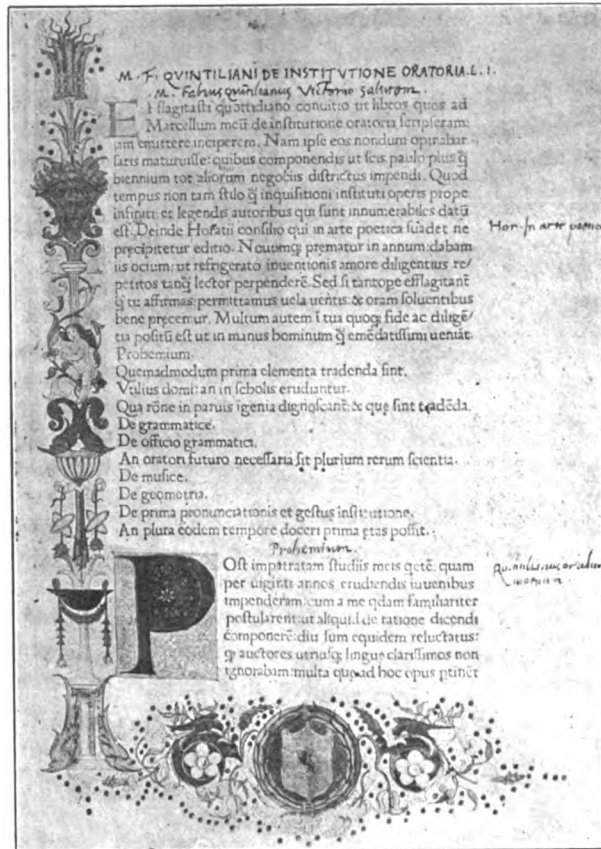 M. F. QVINTILIANI DE INSTITVTIONE ORATORIA. L. I.
M. Fabius quintilianus Victorio salutem.
Efflagitasti quottidiano conuitio ut libros quos ad
Marcellum meū de institutione oratoria scripseram:
iam emittere inciperem. Nam ipse eos nondum opinabar
satis maturuisse: quibus componendis ut scis paulo plus q̄
biennium tot aliorum negociis districtus impendi. Quod
tempus non tam stilo q̄ inquisitioni instituti operis prope
infiniti: et legendis autoribus qui sunt innumerabiles datū
est. Deinde Horatii consilio qui in arte poetica suadet ne
precipitetur editio. Nouumq; prematur in annum: dabam
iis ocium: ut refrigerato inuentionis amore diligentius re/
petitos tanq̄ lector perpenderē. Sed si tantope efflagitant̄
q̄ tu affirmas: permittamus uela uentis: & oram soluentibus
bene precemur. Multum autem ī tua quoq; fide ac diligē/
tia positū est ut in manus hominum q̄ emēdatissimi ueniāt.
Hor. In arte poetica
Prohemium.
Quemadmodum prima elementa tradenda sint.
Vtilius domi: an in scholis erudiantur.
Qua rōne in paruis īgenia dignoscant̄: & que sint tradēda.
De grammatice.
De officio grammatici.
An oratori futuro necessaria sit plurium rerum scientia.
De musice.
De geometria.
De prima pronunciationis et gestus institutione.
An plura eodem tempore doceri prima etas possit.
Prohemium.
POst impetratam studiis meis q̄etē: quam
per uiginti annos erudiendis iuuenibus
impenderam: cum a me q̄dam familiariter
postularent: ut aliquid de ratione dicendi
componerē: diu sum equidem reluctatus:
q̄ auctores utriusq; lingue clarissimos non
ignorabam: multa que ad hoc opus ptinēt